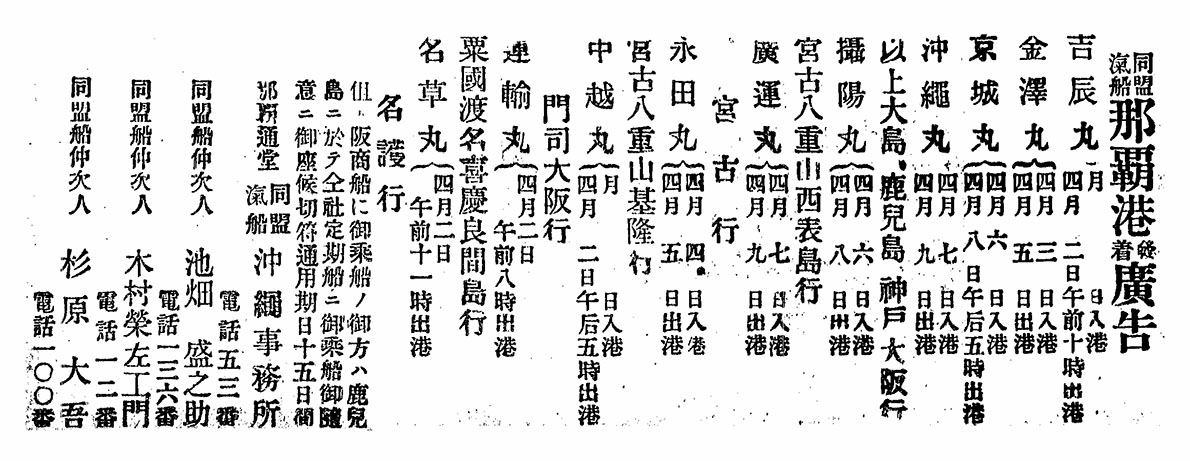 同盟汽船 那覇港發着廣告
吉辰丸 月 日入港
四月二日午前十時出港
金澤丸 四月三日入港
四月五日出港
京城丸 四月六日入港
四月八日午后五時出港
沖繩丸 四月七日入港
四月九日出港
以上大島、鹿兒島、神戸大阪行
攝陽丸 四月六日入港
四月八日出港
宮古八重山西表島行
廣運丸 四月七日入港
四月九日出港
宮古行
永田丸 四月四日入港
四月五日出港
宮古八重山基隆行
中越丸 月 日入港
四月二日午后五時出港
門司大阪行
運輸丸 四月二日
午前八時出港
粟國渡名喜慶良間島行
名草丸 四月二日
午前十一時出港
名護行
但、阪商船に御乘船ノ御方ハ鹿兒
島ニ於テ仝社定期船ニ御乘船御隨
意ニ御座候切符通用期日十五日間
那覇通堂 同盟汽船 沖繩事務所
電話五三番
同盟船仲次人 池畑盛之助
電話一三六番
同盟船仲次人 木村榮左工門
電話一二番
同盟船仲次人 杉原大吾
電話一〇〇番